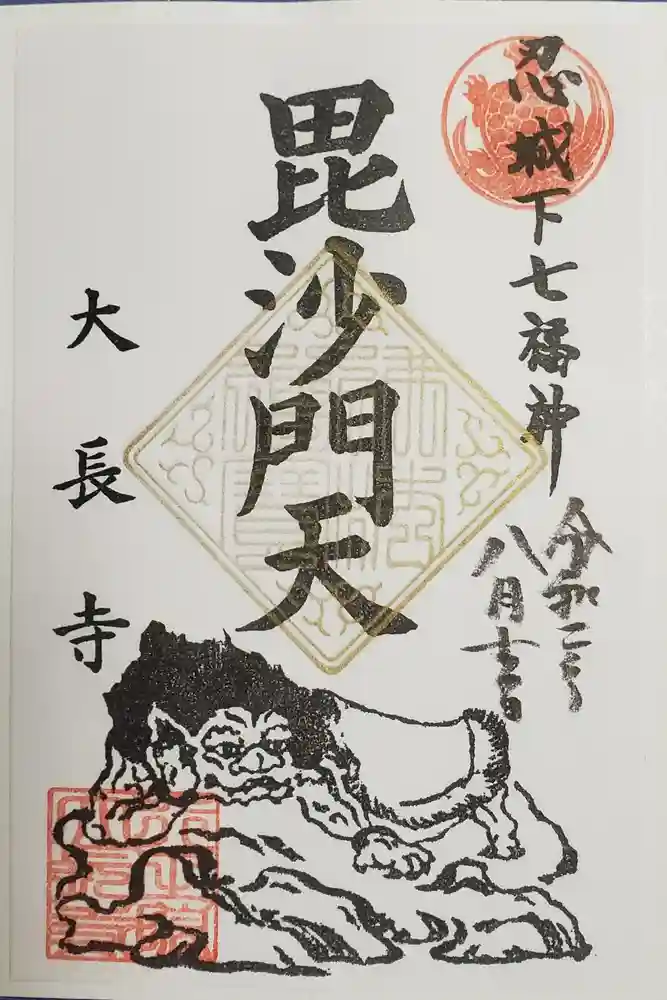 忍城下七福神
令和二年
八月吉日
毘沙門天
大長寺